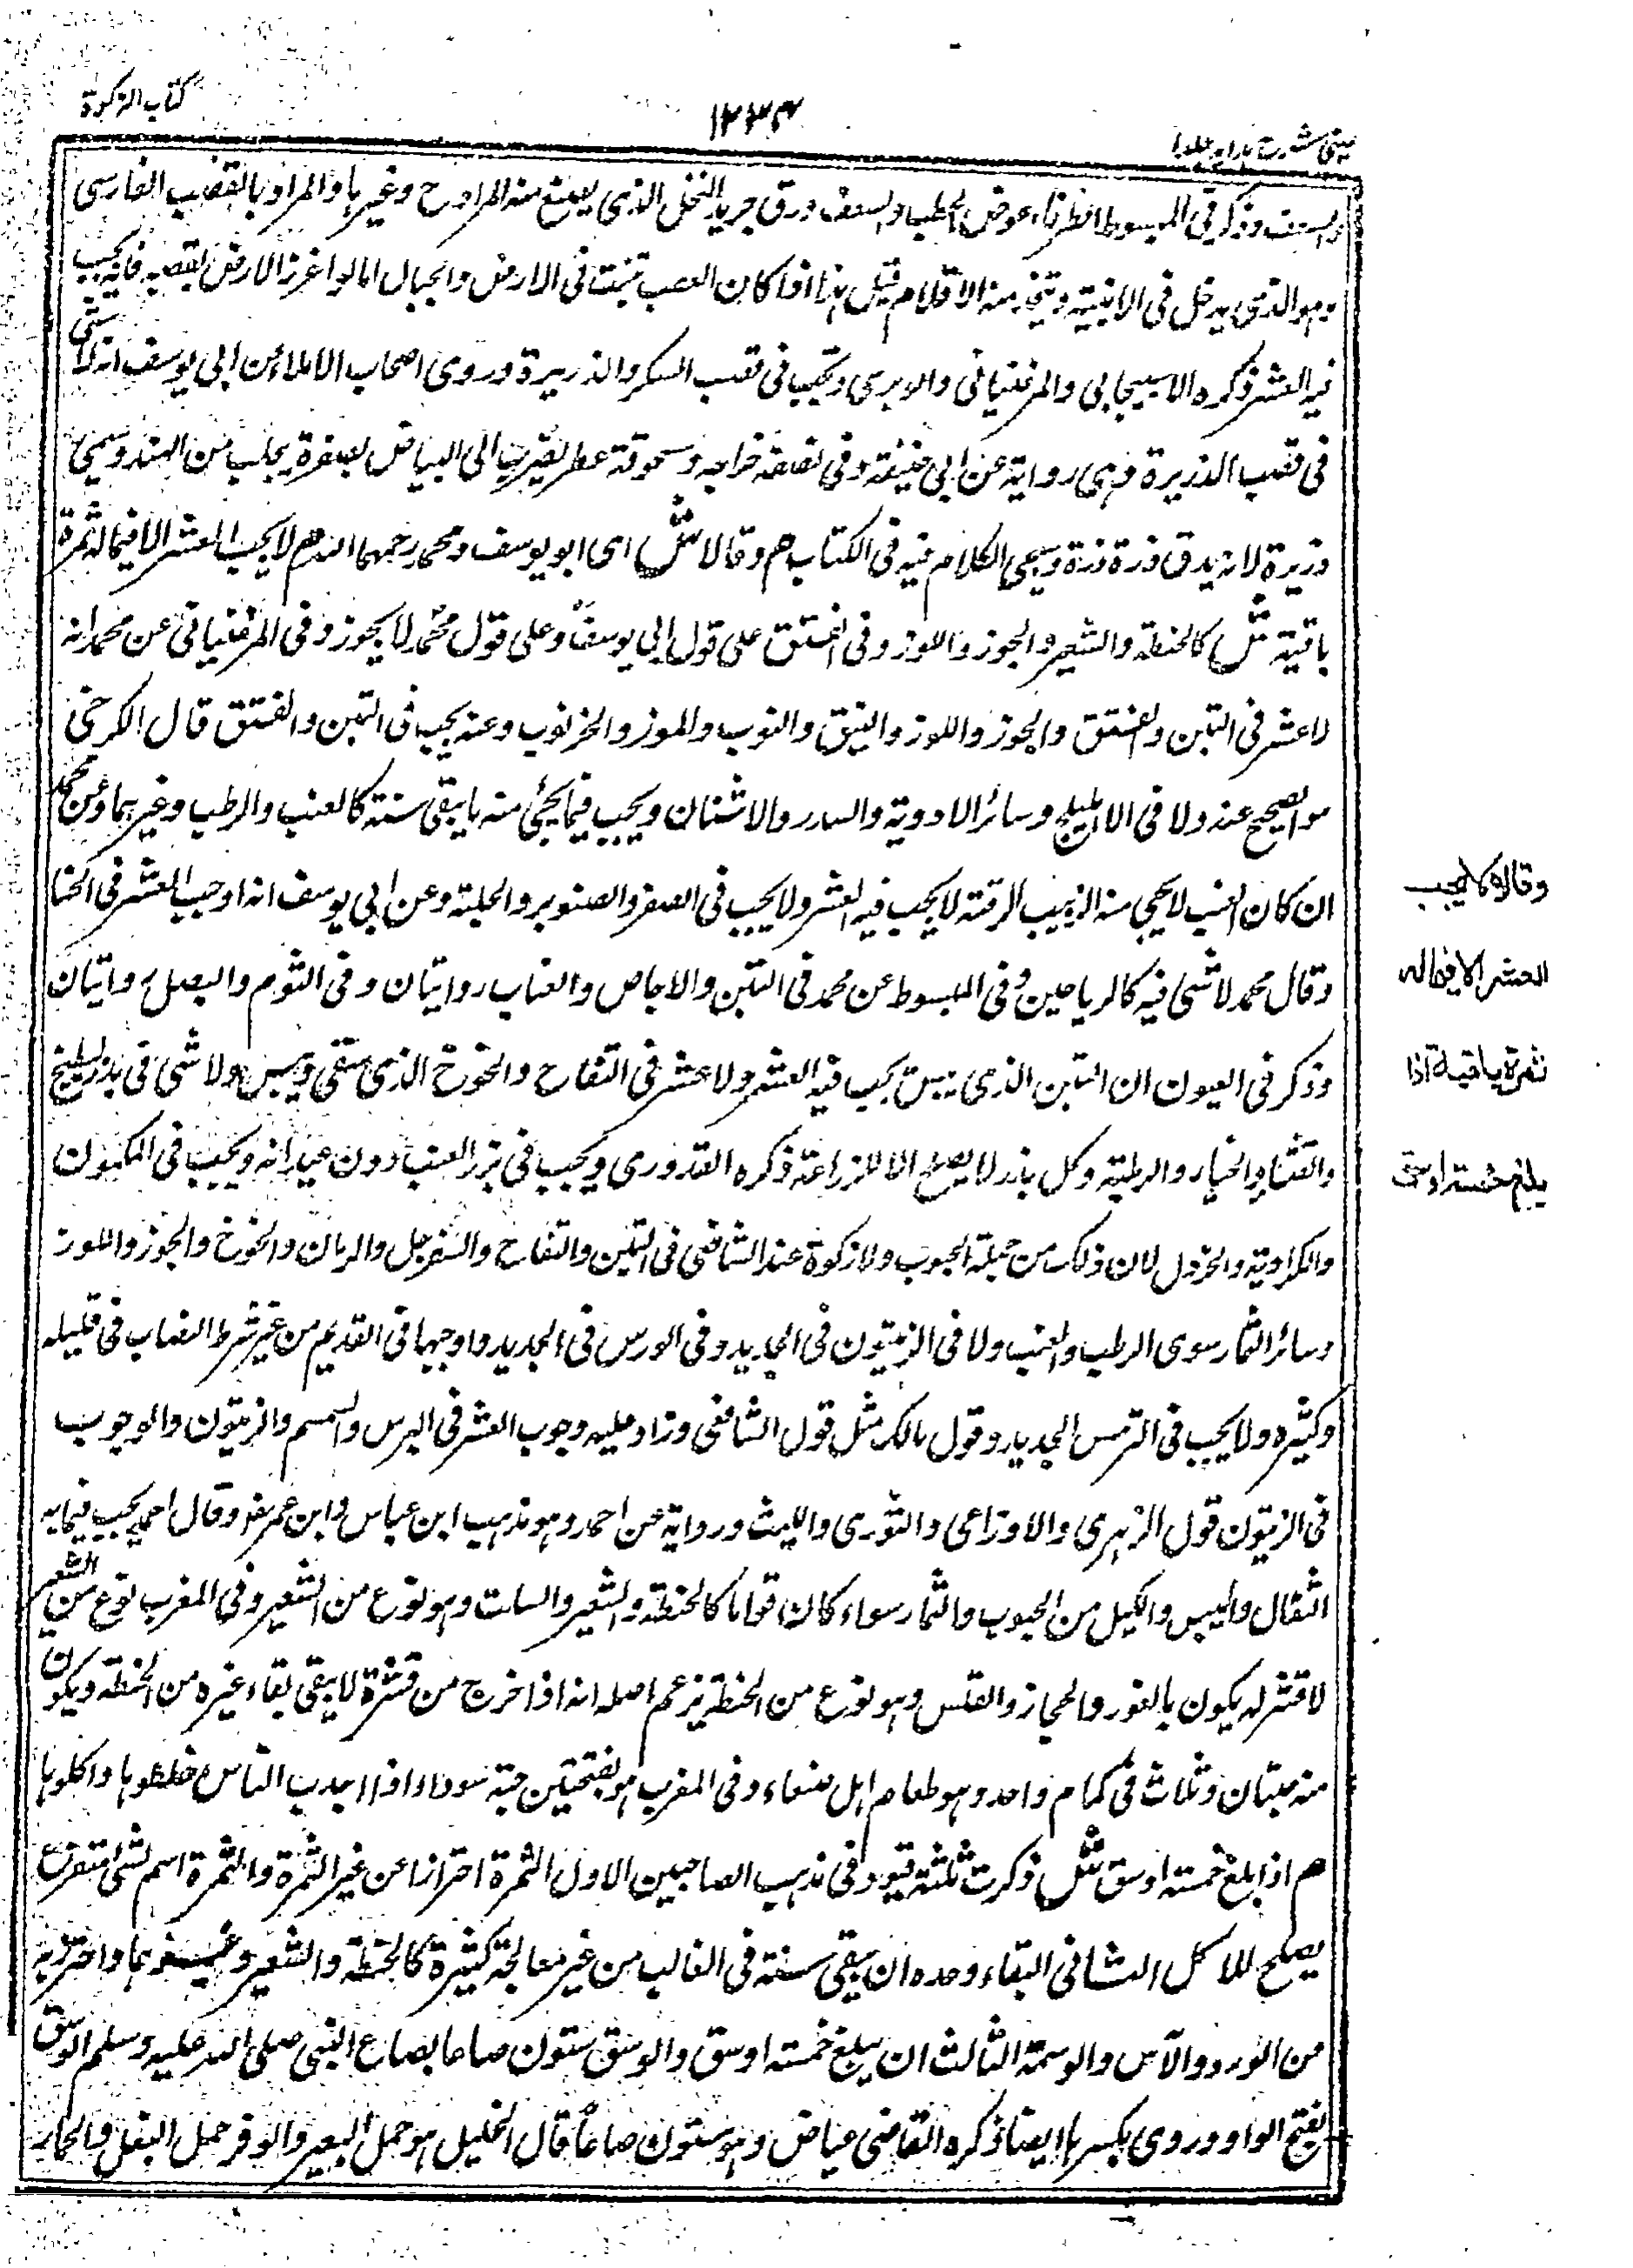 عینی شرح ہدایہ جلد ۱
۱۲۳۴
کتاب الزکوۃ
والسعف وذکر فی المبسوط الطرفاء عوض الحطب والسعف ورق جرید النخل الذی یصنع منہ المراوح وغیرہا والمراد بالقصب الفارسی
وہو الذی یدخل فی الابنیۃ ویتخذ منہ الاقلام قیل ہذا اذا کان القصب تنبت فی الارض والجبال اما لو اغرز الارض بقصبہ فانہ یجب
فیہ العشر ذکرہ الاسبیجابی والمرغینانی والوبری ویجب فی قصب السکر والذریرۃ وروی اصحاب الاملاء عن ابی یوسف انہ لا شئ
فی قصب الذریرۃ وہی روایۃ عن ابی حنیفۃ وفی وسحوقۃ عطر یضرب الی البیاض بصفرۃ یجلب من الہند وسمی
ذریرۃ لانہ یدق ذرۃ ذرۃ وسیجئ الکلام فیہ فی الکتاب م وقالا ش ای ابو یوسف ومحمد رحمہما اللہ م لا یجب العشر الا فیما لہ ثمرۃ
باقیۃ ش کالحنطۃ والشعیر والجوز واللوز وفی الفستق علی قول ابی یوسف وعلی قول محمد لا یجوز وفی المرغینانی عن محمد انہ
لا عشر فی التین والفستق والجوز واللوز والنبق والتوب والموز والخرنوب وعنہ یجب فی التین والفستق قال الکرخی
ہو الصحیح عنہ ولا فی الاہلیلج وسائر الادویۃ والسدر والاشنان ویجب فیما یجئ منہ ما یبقی سنۃ کالعنب والرطب وغیرہما وعن محمد
ان کان العنب لا یجئ منہ الزبیب لرقتہ لا یجب فیہ العشر ولا یجب فی الصفر والصنوبر والحلبۃ وعن ابی یوسف انہ اوجب العشر فی الحنا
وقال محمد لا شئ فیہ کالریاحین وفی المبسوط عن محمد فی التین والاجاص والعناب روایتان وفی الثوم والبصل روایتان
وذکر فی العیون ان التین الذی ییبس یجب فیہ العشر ولا عشر فی التفاح والخوخ الذی یسقی وییبس ولا شئ فی بذر البطیخ
والقثاء والخیار والرطبۃ وکل بذر لا یصلح الا للزراعۃ ذکرہ القدوری ویجب فی بزر العنب دون عیدانہ ویجب فی الکمون
والکراویۃ والخردل لان ذلک من جملۃ الحبوب ولا زکوۃ عند الشافعی فی التین والتفاح والسفرجل والرمان والخوخ والجوز واللوز
وسائر الثمار سوی الرطب والعنب ولا فی الزیتون فی الجدید وفی الورس فی الجدید واوجبہا فی القدیم من غیر شرط النصاب فی قلیلہ
وکثیرہ ولا یجب فی الترمس الجدید وقول مالک مثل قول الشافعی وزاد علیہ وجوب العشر فی البرس والسمسم والزیتون والوجوب
فی الزیتون قول الزہری والاوزاعی والثوری واللیث وروایۃ عن احمد وہو مذہب ابن عباس وابن عمر رض وقال احمد یجب فیما یہ
اثقال والیبس والکیل من الحبوب والثمار سواء کان اقواتا کالحنطۃ والشعیر والسلت وہو نوع من الشعیر وفی المغرب نوع من الشعیر
لا قشر لہ یکون بالغور والحجاز والعلس وہو نوع من الحنطۃ یزعم اصلہ انہ اذا خرج من قشرۃ لا یبقی بقاء غیرہ من الحنطۃ ویکون
منہ حبتان وثلاث فی کمام واحد وہو طعام اہل صنعاء وفی المغرب ہو بفتحتین حبۃ سوداء اذا اجدب الناس خلطوہا واکلوہا
م اذا بلغ خمسۃ اوسق ش ذکرت ثلثۃ قیود فی مذہب الصاحبین الاول الثمرۃ احترازا عن غیر الثمرۃ والثمرۃ اسم لشئ متفرع
یصلح للاکل الثانی البقاء وحدہ ان یبقی سنۃ فی الغالب من غیر معالجۃ کثیرۃ کالحنطۃ والشعیر وغیرہما واحترز بہ
من الورد والآس والوسمۃ الثالث ان یبلغ خمسۃ اوسق والوسق ستون صاعا بصاع النبی صلی اللہ علیہ وسلم الوسق
بفتح الواو وروی بکسرہا ایضا ذکرہ القاضی عیاض وہو ستون صاعاً قال الخلیل ہو حمل البعیر والوقر حمل البغل والحمار
وقالا لا یجب
العشر الا فیما لہ
ثمرۃ باقیۃ اذا
بلغ خمسۃ اوسق